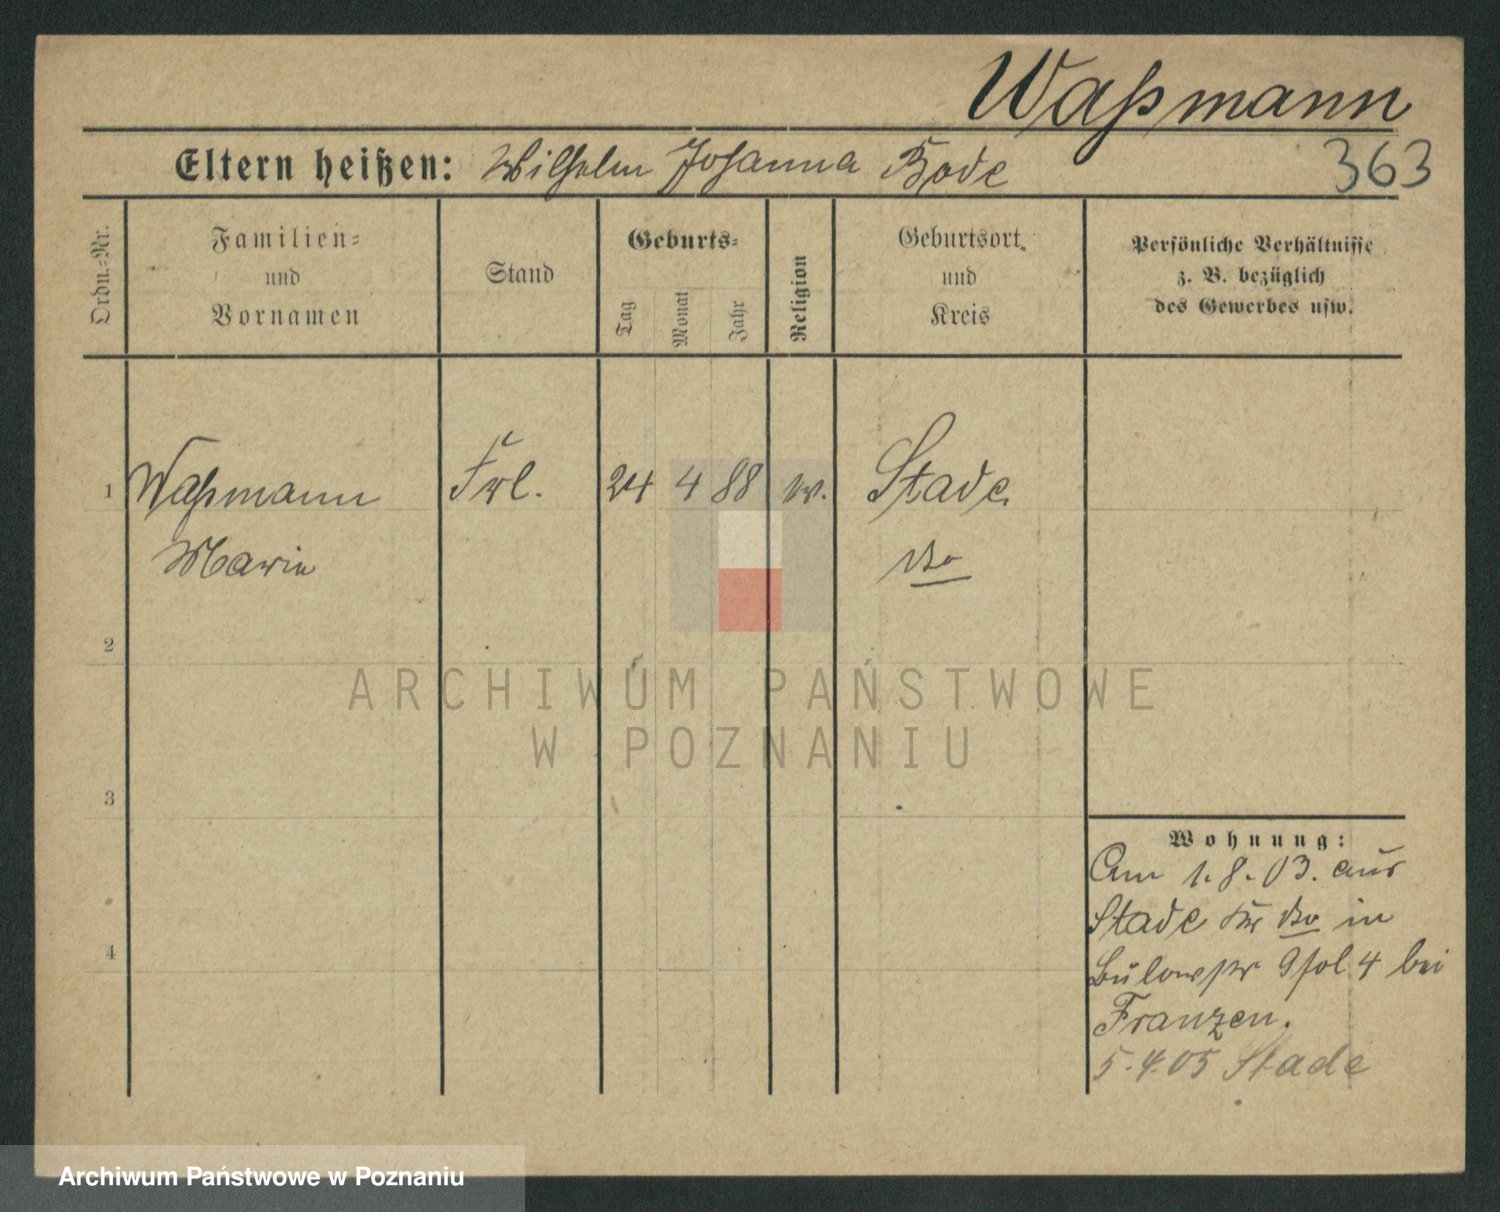 Waßmann
Eltern heißen: Wilhelm Johanna Bode
363
Ordn.-Nr.
Familien-
und
Vornamen
Stand
Geburts-
Tag
Monat
Jahr
Religion
Geburtsort
und
Kreis
Persönliche Verhältnisse
z. B. bezüglich
des Gewerbes usw.
1 Waßmann Frl. 24 4 88 Stade
Marie do
2
ARCHIWUM PAŃSTWOWE
W POZNANIU
3
Wohnung:
Am 1.8.03. aus
Stade do in
4
Bülowstr 9 4 bei
Franzen.
5.4.05 Stade
Archiwum Państwowe w Poznaniu